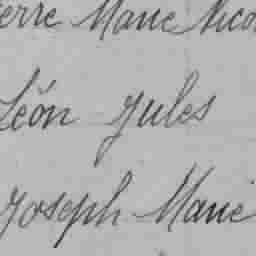 erre Marie Nico
Léon Jules
Joseph Marie